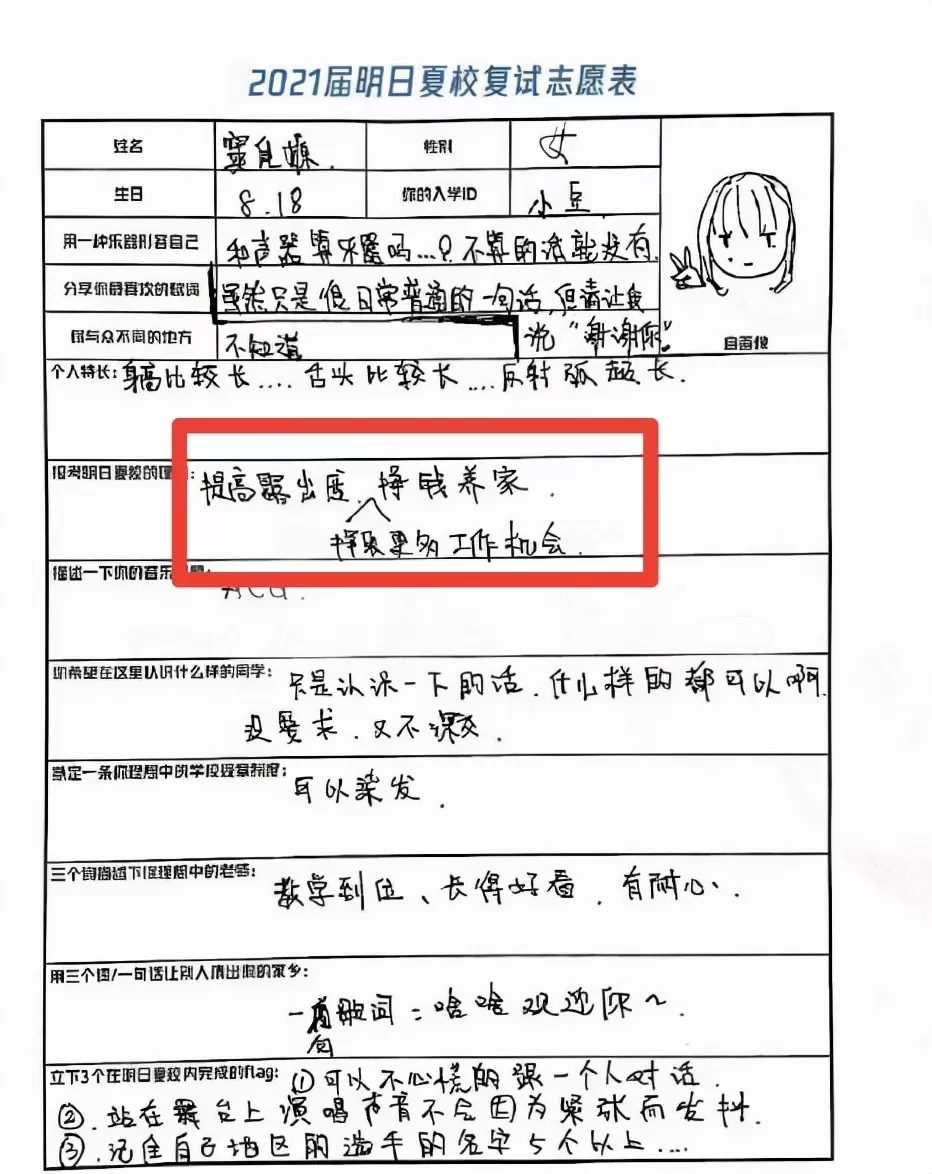 2021届明日夏校复试志愿表
姓名 窦佳嫄. 性别 女
生日 8.18 你的入学ID 小豆
用一种乐器形容自己 和声器算乐器吗...?不算的话就没有.
分享你最喜欢的歌词 虽然只是很日常普通的一句话,但请让我
说“谢谢你”
你与众不同的地方 不知道
自画像
个人特长: 身高比较长....舌头比较长....反射弧超长.
报考明日夏校的理由: 提高露出度. 挣钱养家.
择取更多工作机会.
描述一下你的音乐
你希望在这里认识什么样的同学: 只是认识一下的话.什么样的都可以啊.
没要求.又不课
制定一条你理想中的学校规章制度: 可以染发.
三个词描述下你理想中的老师: 教学到位、长得好看.有耐心.
用三个词/一句话让别人猜出你的家乡:
一句歌词:啥啥欢迎你~.
立下3个在明日夏校内完成的flag: ①可以不心慌的跟一个人对话.
②.站在舞台上演唱声音不会因为紧张而发抖.
③.记住自己地区的选手的名字5个以上....